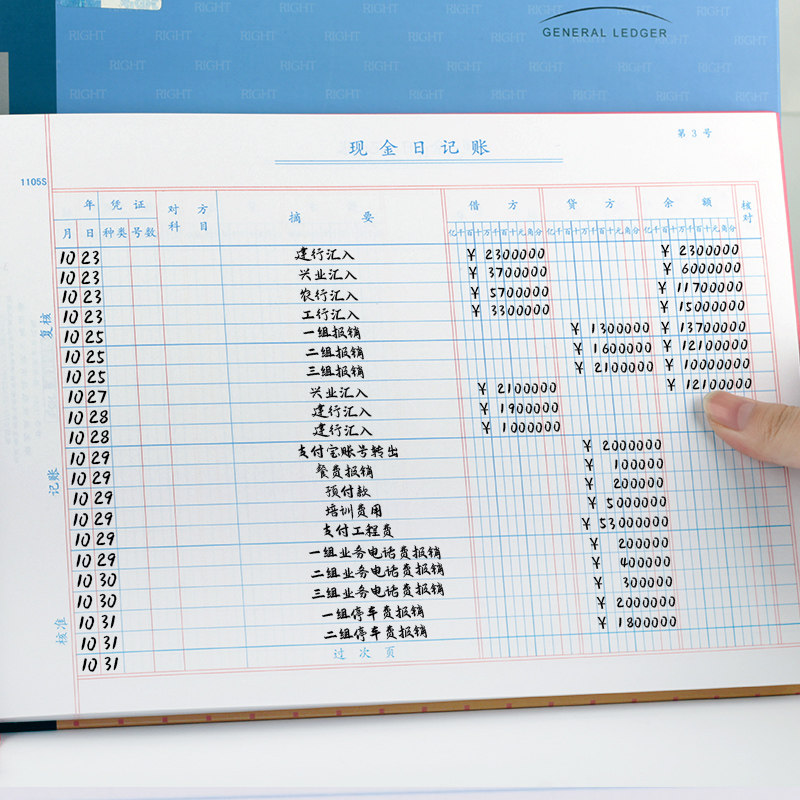 GENERAL LEDGER
RIGHT RIGHT RIGHT RIGHT RIGHT RIGHT RIGHT RIGHT
现金日记账
第 3 号
1105S
年 凭证 对方科目 摘要 借方 贷方 余额 核对
月 日 种类 号数 亿千百十万千百十元角分 亿千百十万千百十元角分 亿千百十万千百十元角分
10 23 建行汇入 ¥ 2300000 ¥ 2300000
10 23 兴业汇入 ¥ 3700000 ¥ 6000000
10 23 农行汇入 ¥ 5700000 ¥ 11700000
10 23 工行汇入 ¥ 3300000 ¥ 15000000
10 25 一组报销 ¥ 1300000 ¥ 13700000
10 25 二组报销 ¥ 1600000 ¥ 12100000
10 25 三组报销 ¥ 2100000 ¥ 10000000
10 27 兴业汇入 ¥ 2100000 ¥ 12100000
10 28 建行汇入 ¥ 1900000
10 28 建行汇入 ¥ 1000000
10 29 支付宝账号转出 ¥ 2000000
10 29 餐费报销 ¥ 100000
10 29 预付款 ¥ 200000
10 29 培训费用 ¥ 5000000
10 29 支付工程费 ¥ 53000000
10 29 一组业务电话费报销 ¥ 200000
10 30 二组业务电话费报销 ¥ 400000
10 30 三组业务电话费报销 ¥ 300000
10 31 一组停车费报销 ¥ 2000000
10 31 二组停车费报销 ¥ 1800000
10 31 过次页
复核
记账
核准